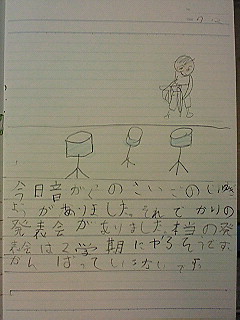 今日音がくのさいごのじゅ
ょうがありました。それでかりの
発表会がありました。本当の発
表会は2学期にやるそうです
がんばっていきたいです